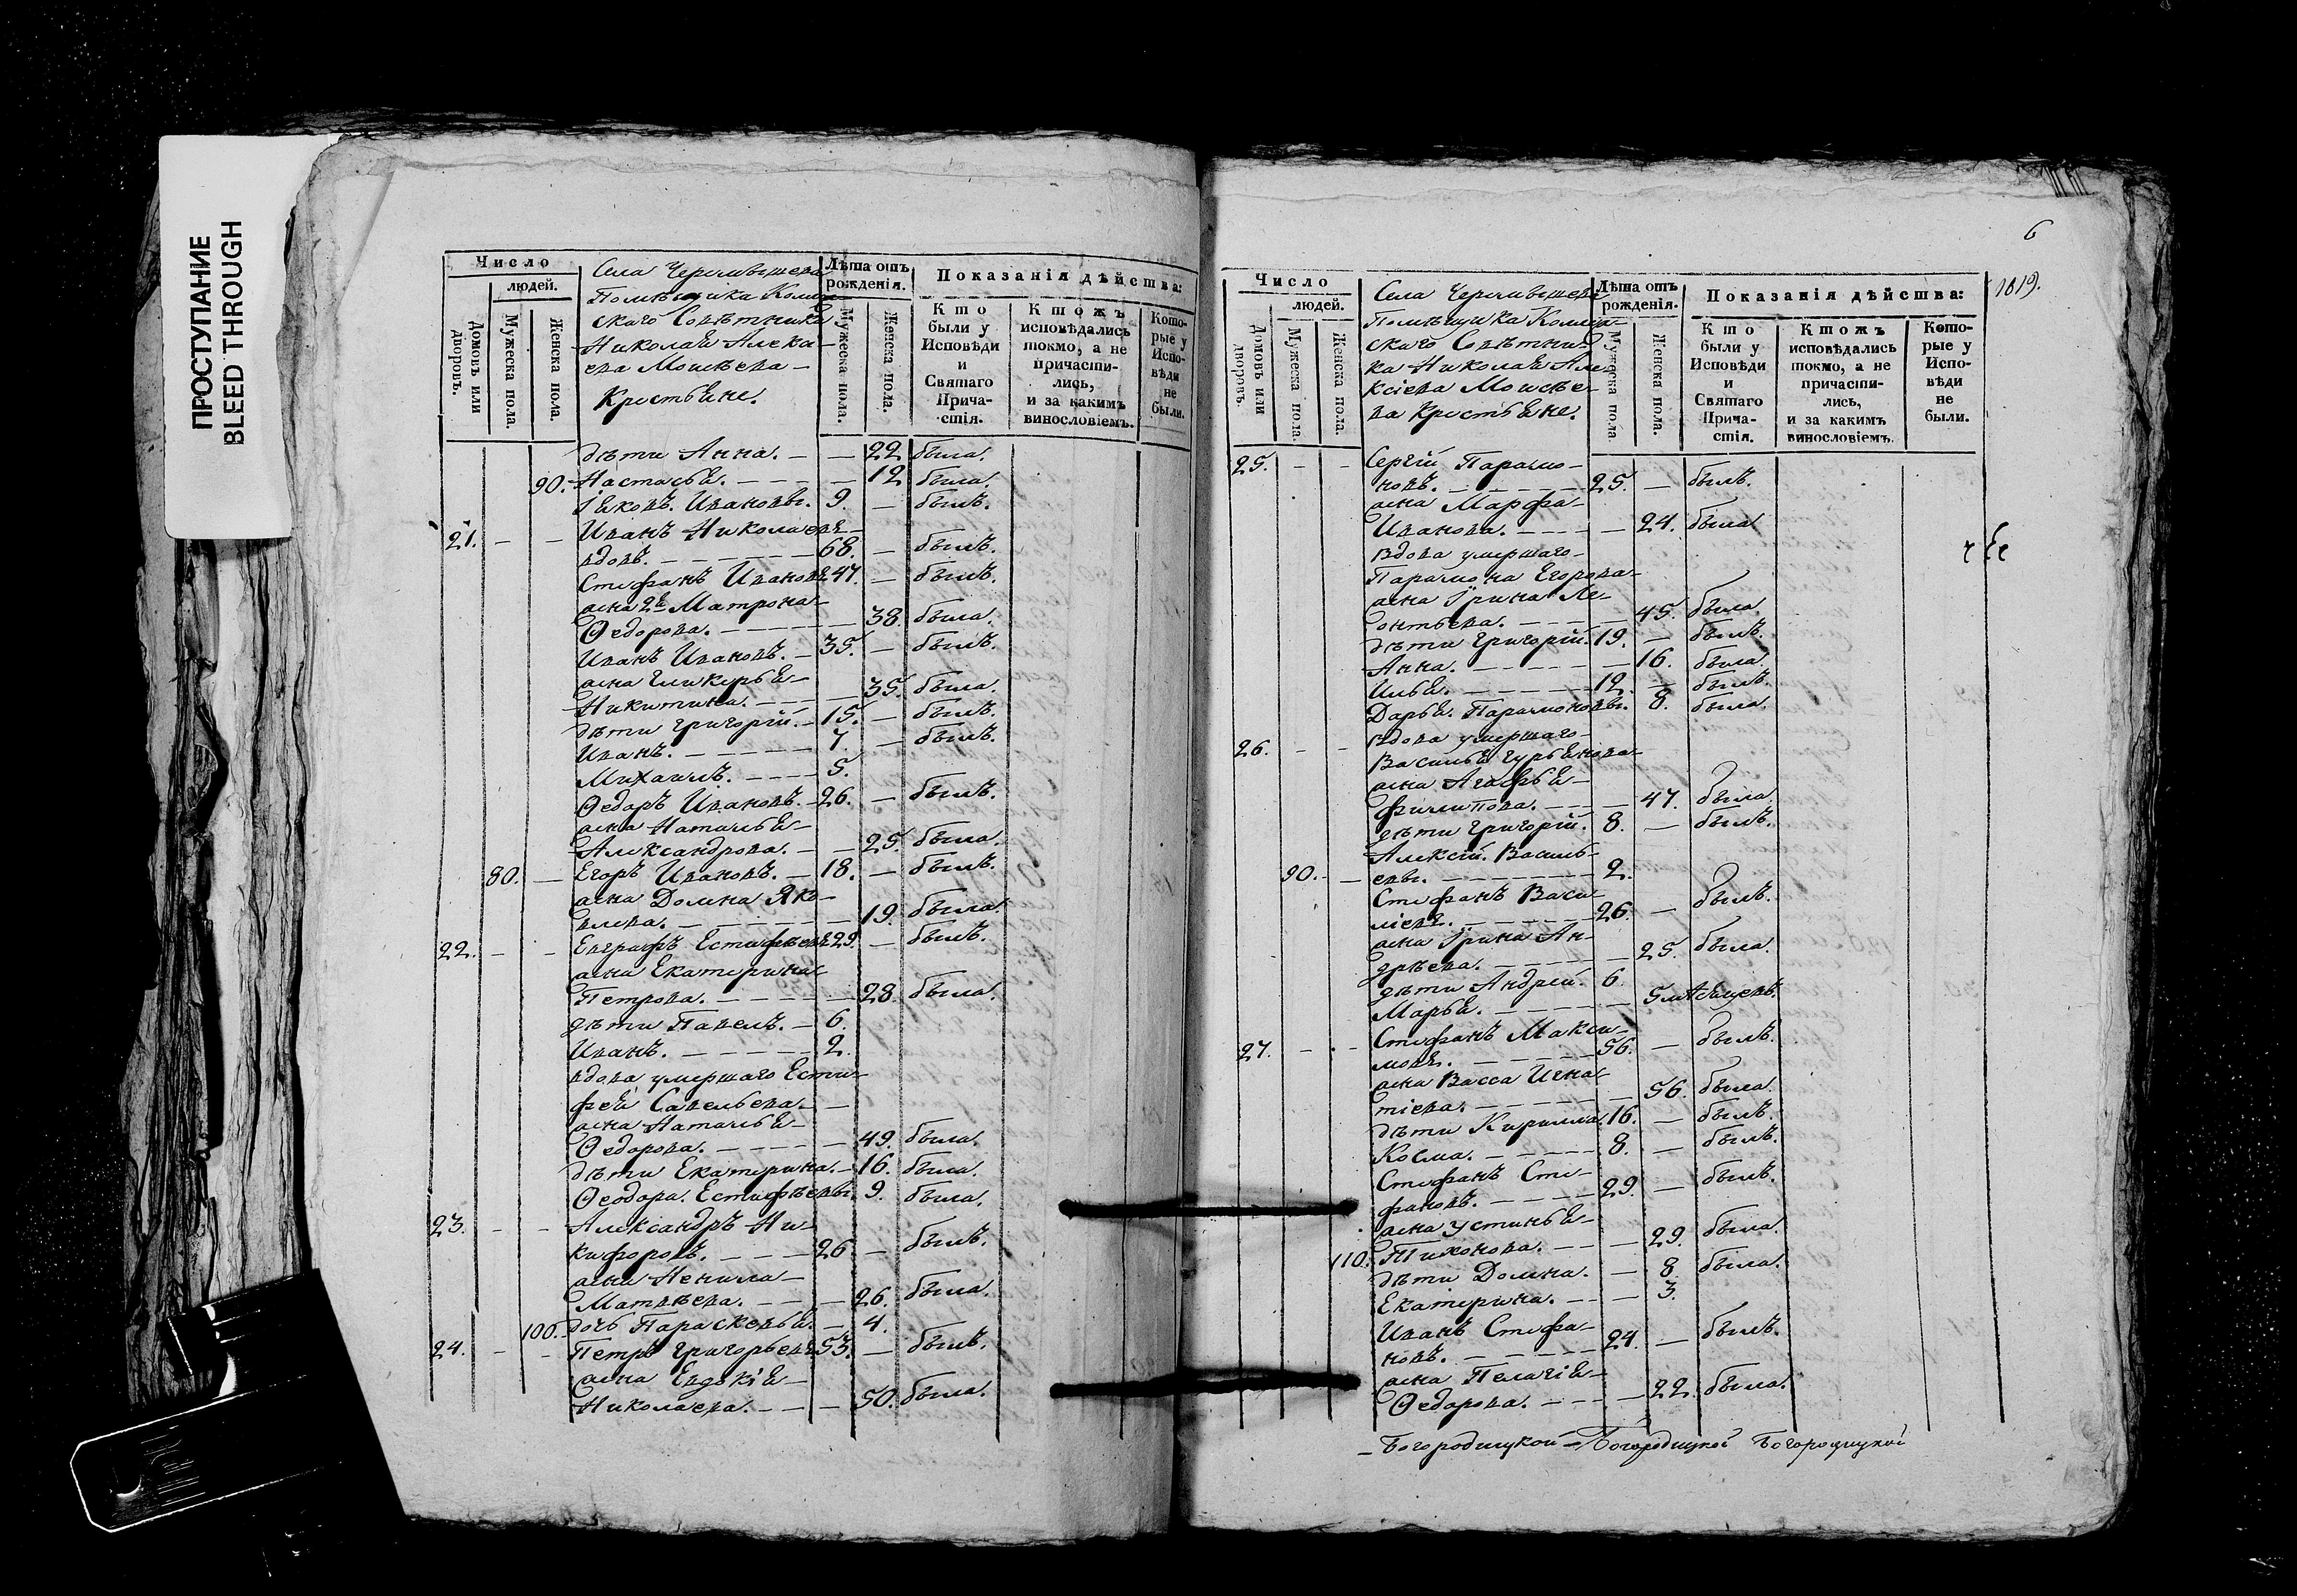 ПРОСТУПАНИЕ
BLEED THROUGH
Число
людей.
Домовъ или дворовъ.
Мужеска пола.
Женска пола.
Села
Помѣщика
скаго Совѣтника
Николая Алекси-
ева Моисѣева
Крестьяне.
Лѣта отъ
рожденія.
Мужеска пола.
Женска пола.
Показанія дѣйства:
Кто
были у
Исповѣди
и
Святаго
Прича-
стія.
Ктожъ
исповѣдались
токмо, а не
причасти-
лись,
и за какимъ
винословіемъ.
Кото-
рые у
Испо-
вѣди
не
были.
дѣти Анна. — — 22 была.
90. Настасья. — — 12 была.
Іяковъ. Ивановы. 9. — былъ.
21. — — Иванъ Николаевъ
вдовъ. — 68. — былъ.
Стефанъ Ивановъ 47. — былъ.
жена 2я Матрона
Ѳедорова. — 38. была.
Иванъ Ивановъ. — 35. — былъ.
жена Гликерья
Никитина. — 35. была.
дѣти Григорій. — 15. — былъ.
Иванъ. — 7. — былъ.
Михаилъ. — 5.
Ѳедоръ Ивановъ. — 26. — былъ.
жена Наталья
Александрова. — — 25. была.
80. — Егоръ Ивановъ. — 18. — былъ.
жена Домна Яко-
влева. — 19. была.
22. — — Евграфъ Естифѣевъ 29. — былъ.
жена Екатерина
Петрова. — 28. была.
дѣти Павелъ. — 6.
Иванъ. — 2.
вдова умершаго Ести-
фея Савельева. —
жена Наталья
Ѳедорова. — 49. была.
дѣти Екатерина. — 16. была.
Ѳеодора. Естифѣевы. 9. была.
23. — — Александръ Ни-
кифоровъ. — 26 — былъ.
жена Ненила
Матвѣева. — 26. была.
100. дочь Параскевья. — 4.
24. — — Петръ Григорьевъ 53. — былъ.
жена Евдокія
Николаева. — — 50. была.
6
1819.
Число
людей.
Домовъ или дворовъ.
Мужеска пола.
Женска пола.
Села
Помѣщика
скаго Совѣтни-
ка Николая Але-
ксіева Моисѣе-
ва Крестьяне.
Лѣта отъ
рожденія.
Мужеска пола.
Женска пола.
Показанія дѣйства:
Кто
были у
Исповѣди
и
Святаго
Прича-
стія.
Ктожъ
исповѣдались
токмо, а не
причасти-
лись,
и за какимъ
винословіемъ.
Кото-
рые у
Испо-
вѣди
не
были.
25. — — Сергій Парамо-
новъ. — 25. — былъ.
жена Марфа
Иванова. — 24. была.
Вдова умершаго
Парамона Егорова
жена Ірина Ле-
онтьева. — 45. была.
дѣти Григорій. 19. — былъ.
Анна. — 16. была.
Илья. — 12. — былъ.
Дарья. Парамоновы. 8. была.
26. — — Вдова умершаго
Василья Гурьянова
жена Агафья
Филипова. — 47. была.
дѣти Григорій. 8. — былъ.
Алексій. Василь-
90. — евы. — 2.
Стефанъ Васи-
ліевъ. — 26. — былъ.
жена Ірина Ан-
дрѣева. — 25. была.
дѣти Андрей. 6.
Марья. — 5
27. — — Стефанъ Макси-
мовъ. — 56. — былъ.
жена Васса Игна-
тіева. — 56. была.
дѣти Кирилла. 16. — былъ.
Косма. — 8. — былъ.
Стефанъ Сте-
фановъ. — 29. — былъ.
жена Устинья
110. Тихонова. — 29. была.
дѣти Домна. — 8. была.
Екатерина. — 3.
Иванъ Стефа-
новъ. — 24. — былъ.
жена Пелагія
Ѳедорова. — 22. была.
Богородицкой Богородицкой Богородицкой